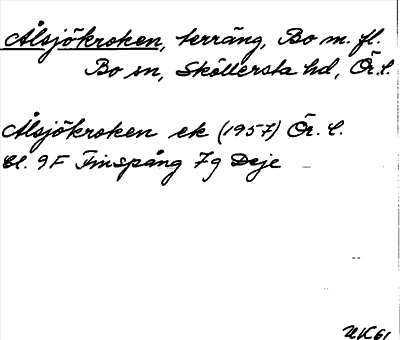 Ålsjökroken, terräng, Bo m. fl.
Bo sn, Sköllersta hd, Ör. l.
Ålsjökroken ek (1957) Ör. l.
bl. 9F Finspång 7g Deje
UK61